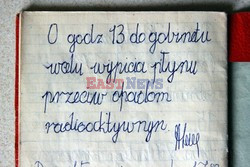 O godz 13 do gabinetu
celu wypicia płynu
przeciw opadom
radioaktywnym.
EAST NEWS